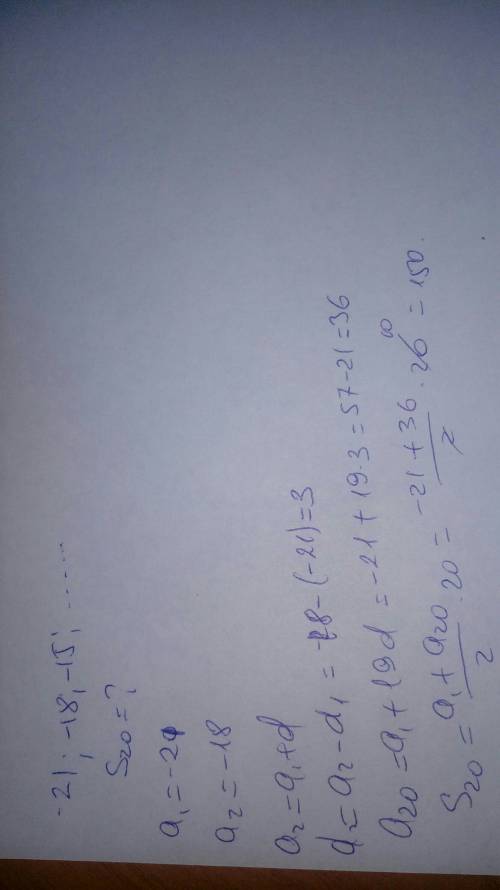 -21; -18; -15; ......
S₂₀ = ?
a₁ = -21
a₂ = -18
a₂ = a₁ + d
d = a₂ - d₁ = -18 - (-21) = 3
a₂₀ = a₁ + 19d = -21 + 19·3 = 57 - 21 = 36
S₂₀ = (a₁ + a₂₀)/2 · 20 = (-21 + 36)/2 · 20 10 = 150.